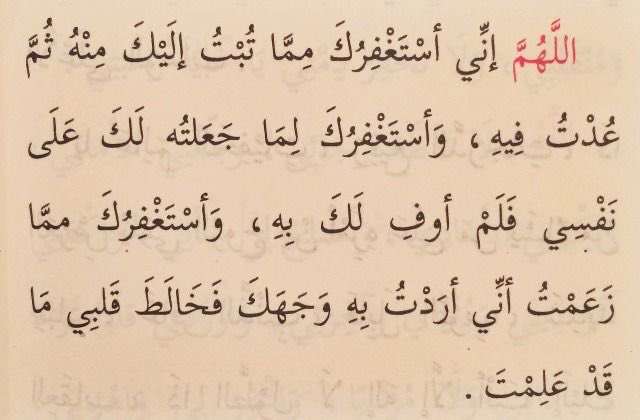 اللَّهُمَّ إنِّي أسْتَغْفِرُكَ مِمَّا تُبْتُ إلَيْكَ مِنْهُ ثُمَّ
عُدْتُ فِيهِ، وَأسْتَغْفِرُكَ لِمَا جَعَلتُه لَكَ عَلَى
نَفْسِي فَلَمْ أوفِ لَكَ بِهِ، وَأسْتَغْفِرُكَ ممَّا
زَعَمْتُ أنِّي أرَدْتُ بِهِ وَجَهَكَ فَخَالَطَ قَلبِي مَا
قَدْ عَلِمْتَ .